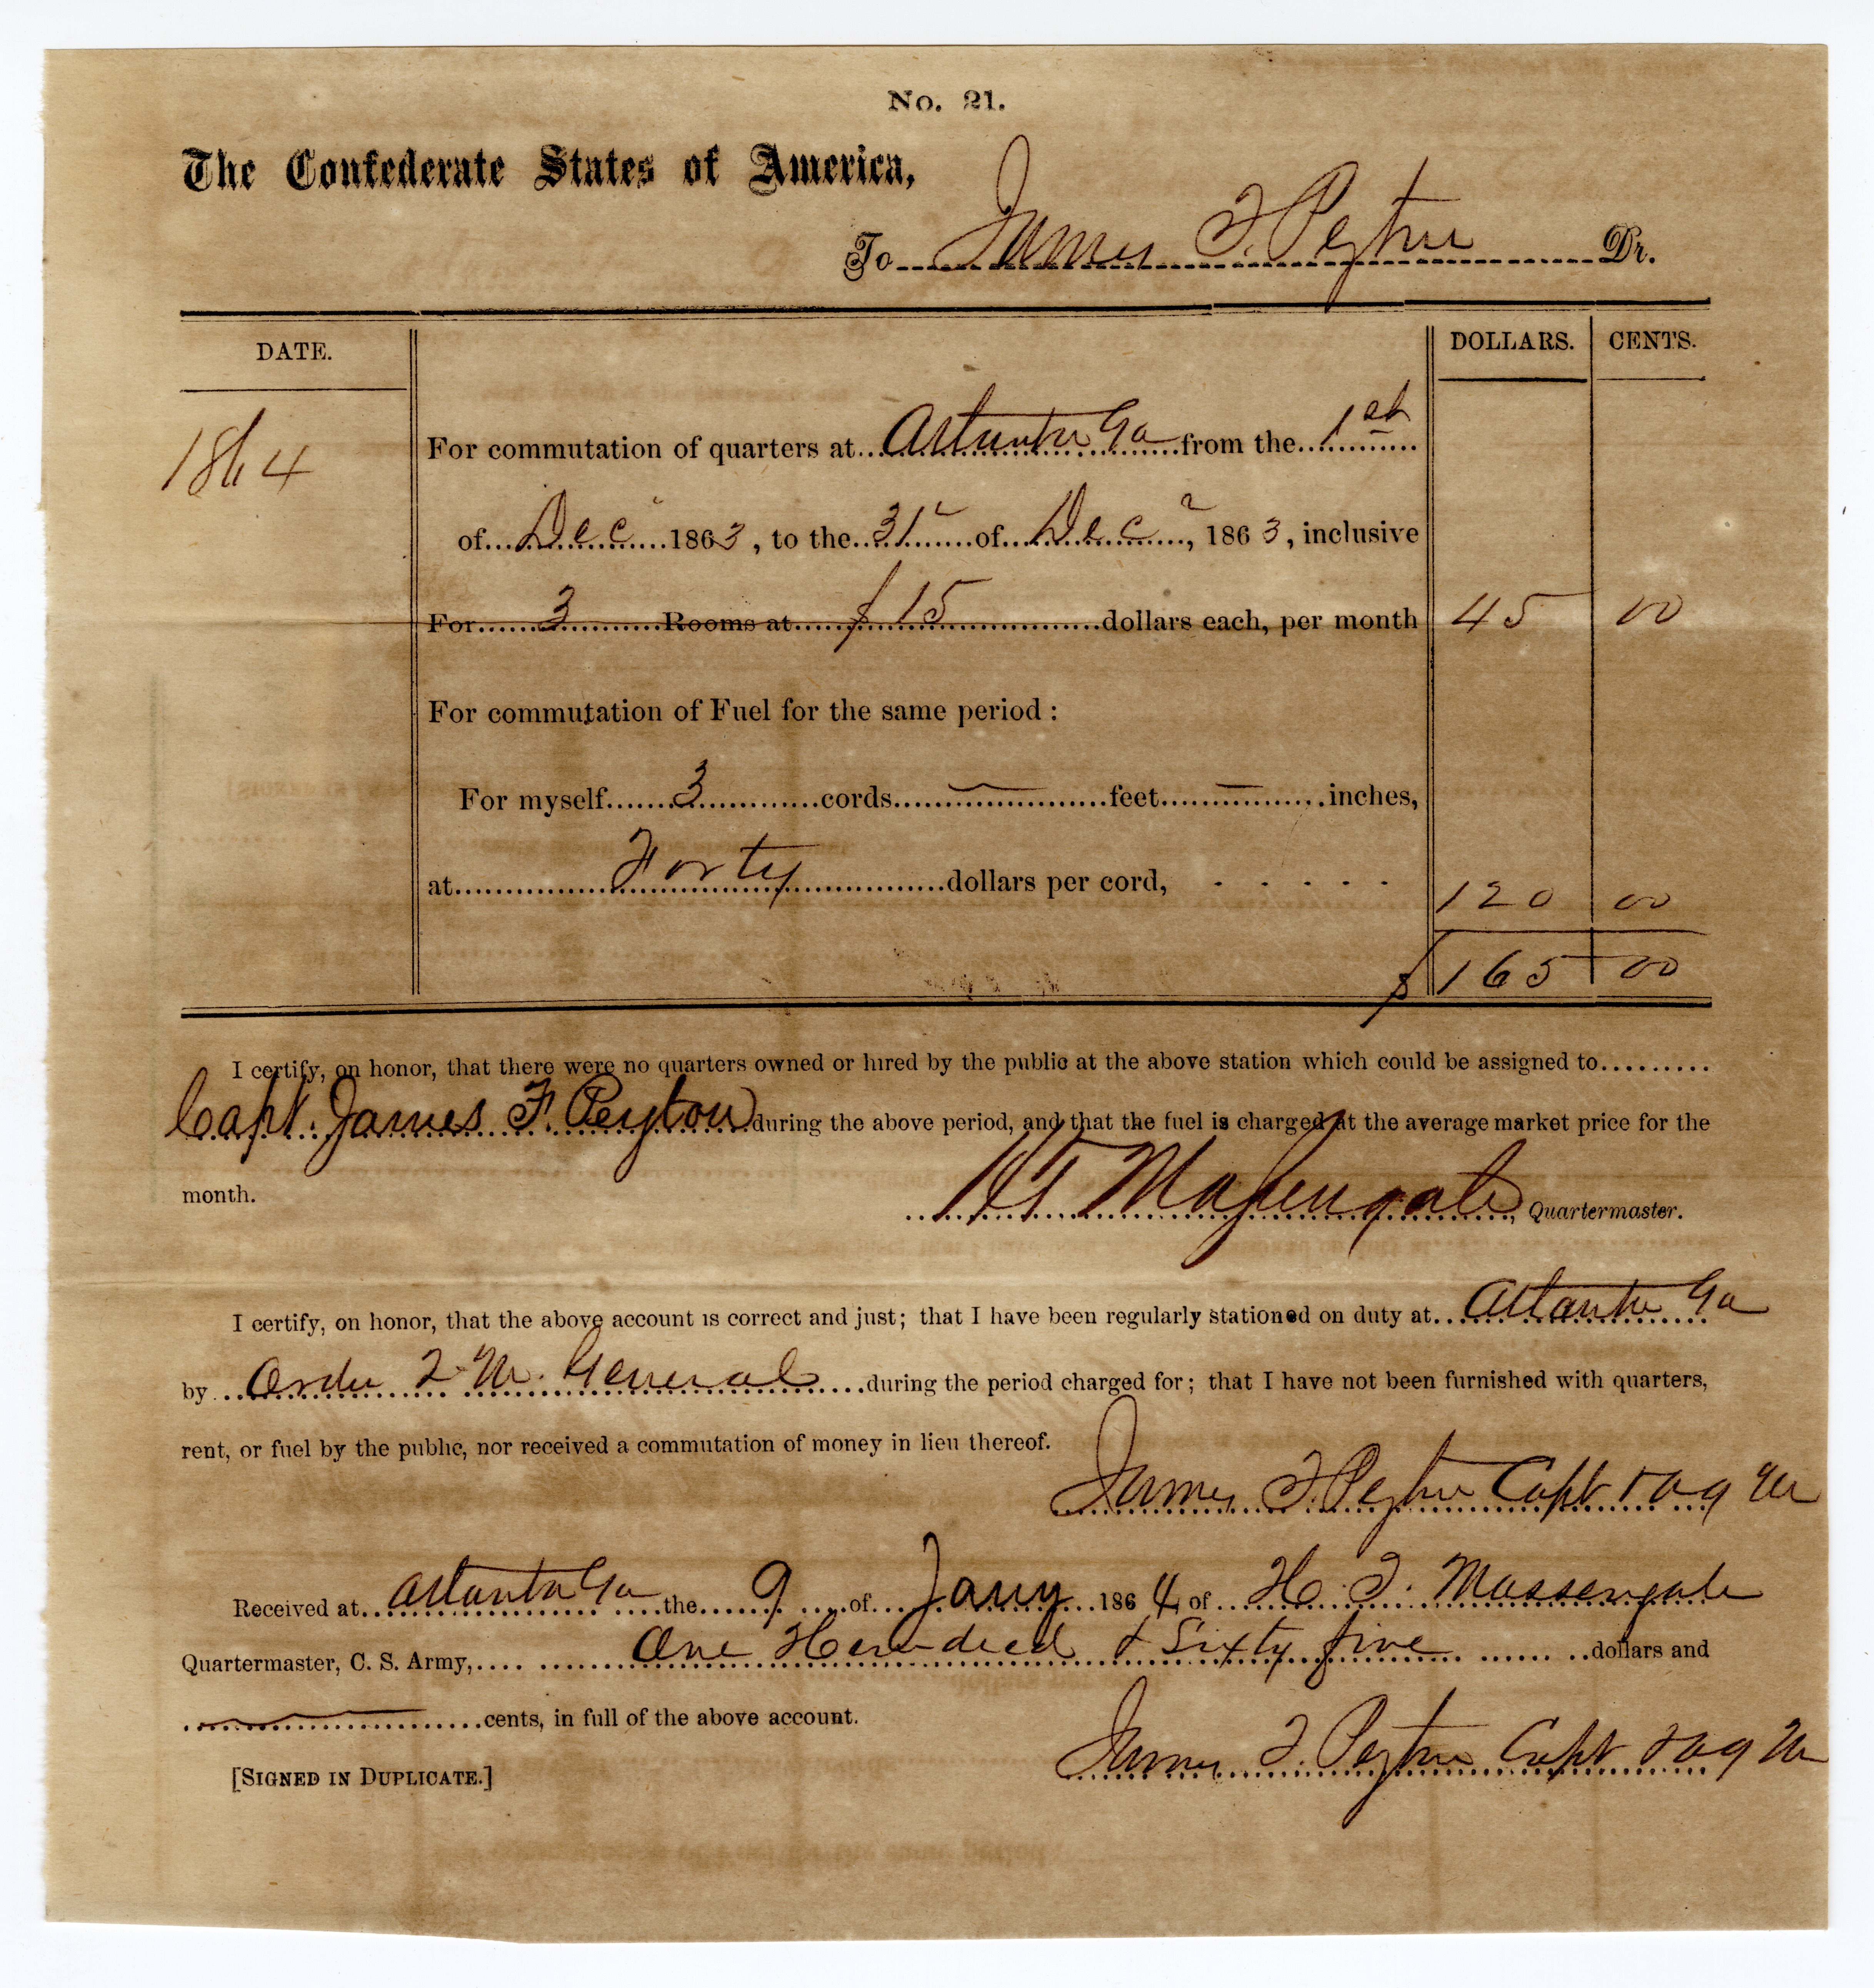 No. 21.
The Confederate States of America,
To James F. Peyton Dr.
DATE. DOLLARS. CENTS.
1864 For commutation of quarters at Atlanta Ga from the 1st
of Dec 1863, to the 31 of Dec, 1863, inclusive
For 3 Rooms at $15 dollars each, per month 45 00
For commutation of Fuel for the same period:
For myself 3 cords — feet — inches,
at Forty dollars per cord, 120 00
$ 165 00
I certify, on honor, that there were no quarters owned or hired by the public at the above station which could be assigned to
Capt. James F. Peyton during the above period, and that the fuel is charged at the average market price for the
month.
H T Massengale, Quartermaster.
I certify, on honor, that the above account is correct and just; that I have been regularly stationed on duty at Atlanta Ga
by Order Q M. General during the period charged for; that I have not been furnished with quarters,
rent, or fuel by the public, nor received a commutation of money in lieu thereof.
James F. Peyton Capt & A Q M
Received at Atlanta Ga the 9 of Jany 1864, of H. T. Massengale
Quartermaster, C. S. Army, One Hundred & Sixty five dollars and
— cents, in full of the above account.
James F. Peyton Capt & A Q M
[SIGNED IN DUPLICATE.]